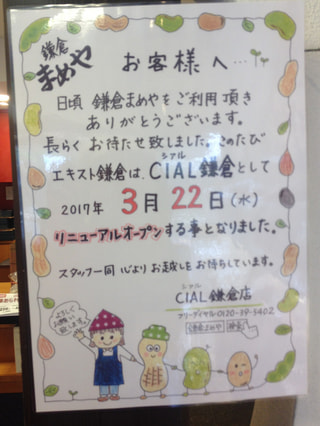 鎌倉
まめや
お客様へ…
日頃 鎌倉まめやをご利用頂き
ありがとうございます。
長らくお待たせ致しました。このたび
エキスト鎌倉は、CIAL鎌倉として
シァル
2017年 3月 22日(水)
リニューアルオープンする事となりました。
スタッフ一同 心よりお越しをお待ちしています。
シァル
CIAL鎌倉店
フリーダイヤル・0120-39-5402
鎌倉まめや 検索
よろしく
お願い
致します